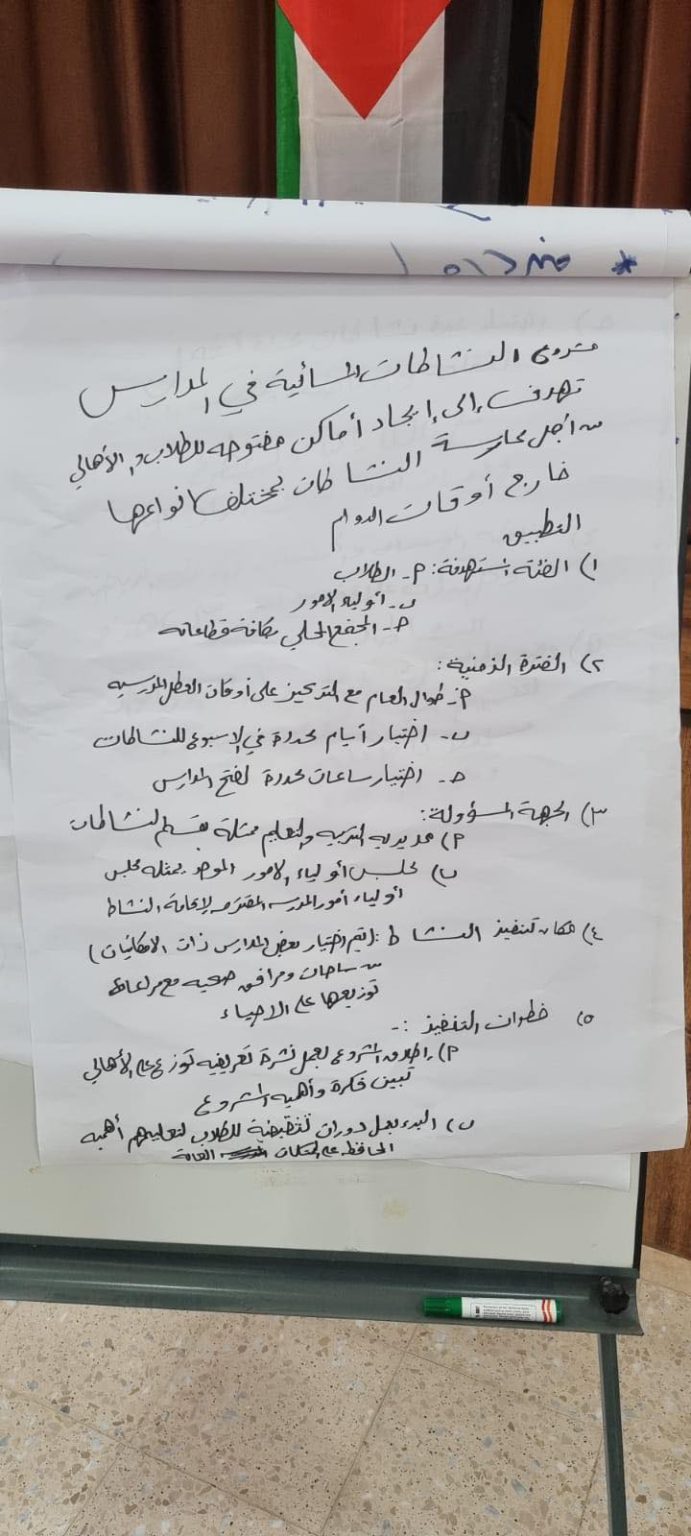 مشروع النشاطات المسائية في المدارس
تهدف إلى إيجاد أماكن مفتوحه للطلاب والأهالي
من أجل ممارسة النشاطات بمختلف انواعها
خارج أوقات الدوام
التطبيق
١) الفئة المستهدفة: ٩- الطلاب
ب- أولياء الامور
ج- المجتمع المحلي بكافة قطاعاته
٢) الفترة الزمنية:
٩- طوال العام مع التركيز على أوقات العطل المدرسيه
ب- اختيار أيام محددة في الاسبوع للنشاطات
ج- اختيار ساعات محددة لفتح المدارس
٣) الجهة المسؤولة:
٩) مديريه التربيه والتعليم ممثلة بقسم النشاطات
ب) مجلس أولياء الامور الموحد يمثله مجلس
أولياء أمور المدرسه المقترحه لإقامة النشاط
٤) مكان تنفيذ النشاط: (يتم اختيار بعض المدارس ذات الامكانيات)
من ساحات ومرافق صحيه مع مراعاة
توزيعها على الاحياء
٥) خطوات التنفيذ :-
٩) اطلاق المشروع بعمل نشرة تعريفيه توزع على الأهالي
تبين فكرة وأهميه المشروع
ب) البدء بعمل دورات تثقيفية للطلاب لتعليمهم أهميه
الحافظ على الممتلكات العامة